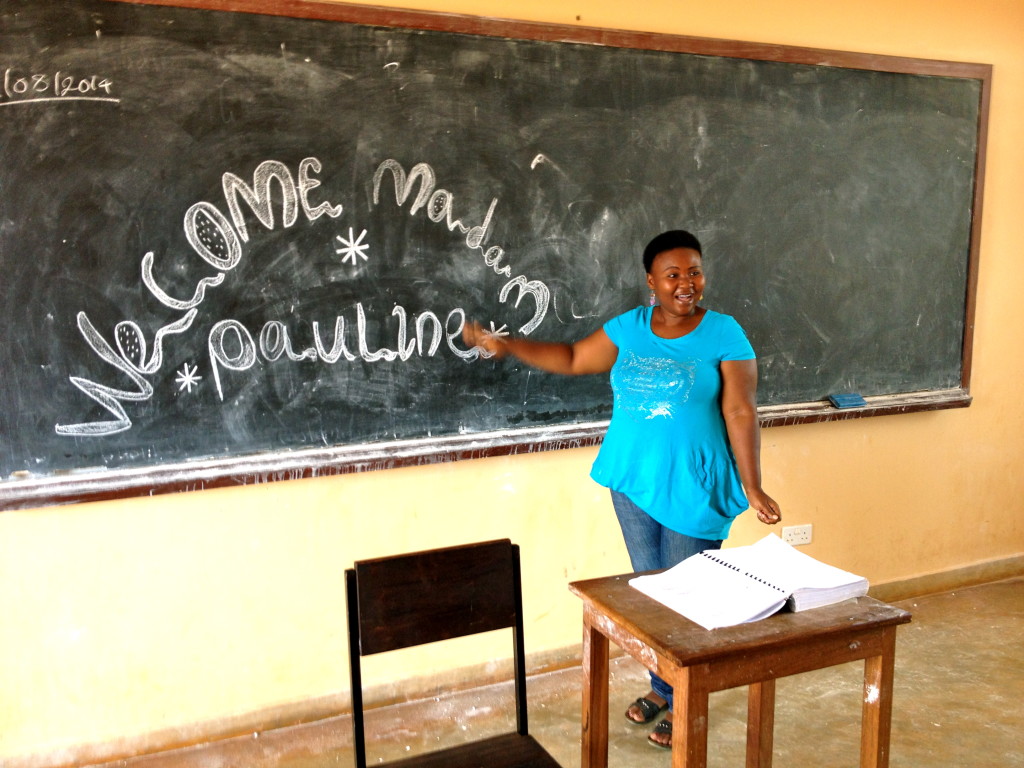 /08/2014
WeLCOME Madam
Pauline